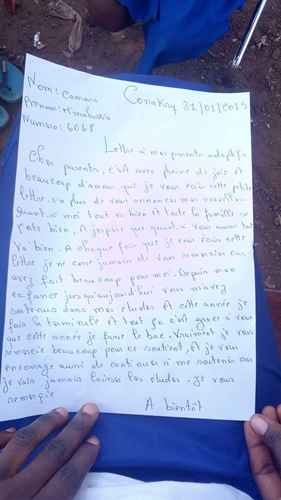 Nom: Camara
Conakry 31/01/2019
Prenom: Mmahawa
Numero: 6068
Lettre à mes parents adoptifs
Cher parents, c'est avec pleine de joie A
beaucoup d'amour que je vous ecris cette petite
lettre. en plus de vous annoncer mes nouvelles.
quant-à moi tout va bien A toute la famille se
Porte bien, A j'espère que quant-à vous aussi tout
va bien. A chaque fois que je vous ecris cette
lettre je ne cesse jamais de vous remercie car
avez fait beaucoup pour moi. Depuis mon
enfance jusqu'aujourd'hui vous m'avez
soutenus dans mes etudes. A cette année je
fais la terminale A tout ça c'est grace à vous
que cette année je fasse le bac. Vraiment je vous
remercie beaucoup pour ce soutient, A je vous
encourage aussi de continuer à me soutenir car
je vais jamais laisser les etudes. je vous
remercie
A bientôt